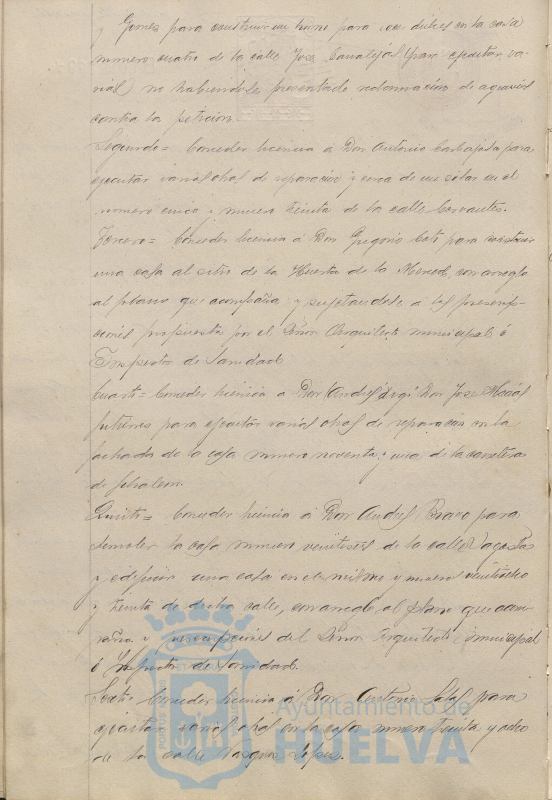 y Gomez para construir un horno para dulces en la casa
numero cuatro de la calle Jose Canalejas para ejecutar va-
rias no habiendose presentado reclamación de agravios
contra la peticion.
Segundo = Conceder licencia á Don Antonio Carbajosa para
ejecutar varias obras de reparacion y cerca de un solar en el
numero cinco y nueve treinta de la calle Cervantes.
Tercero = Conceder licencia á Don Gregorio para construir
una casa al sitio de la Huerta de la Merced, con arreglo
al plano que acompaña y sujetandose á las prescrip-
ciones propuestas por el Señor Arquitecto municipal é
Inspector de Sanidad.
Cuarto = Conceder licencia á Don Andres y Don Jose
para ejecutar varias obras de reparacion en la
fachada de la casa numero noventa y una de la carretera
de
Quinto = Conceder licencia á Don Andres Bravo para
demoler la casa numero veintiseis de la calle Sagasta
y edificar una casa en el mismo y numero veintiocho
y treinta de dicha calle, con arreglo al plano que acom-
paña y prescripciones del Señor Arquitecto municipal
é Inspector de Sanidad.
Sexto = Conceder licencia á Don Antonio para
ejecutar varias obras en la casa numero treinta y ocho
de la calle Vazquez Lopez.
Ayuntamiento de
HUELVA